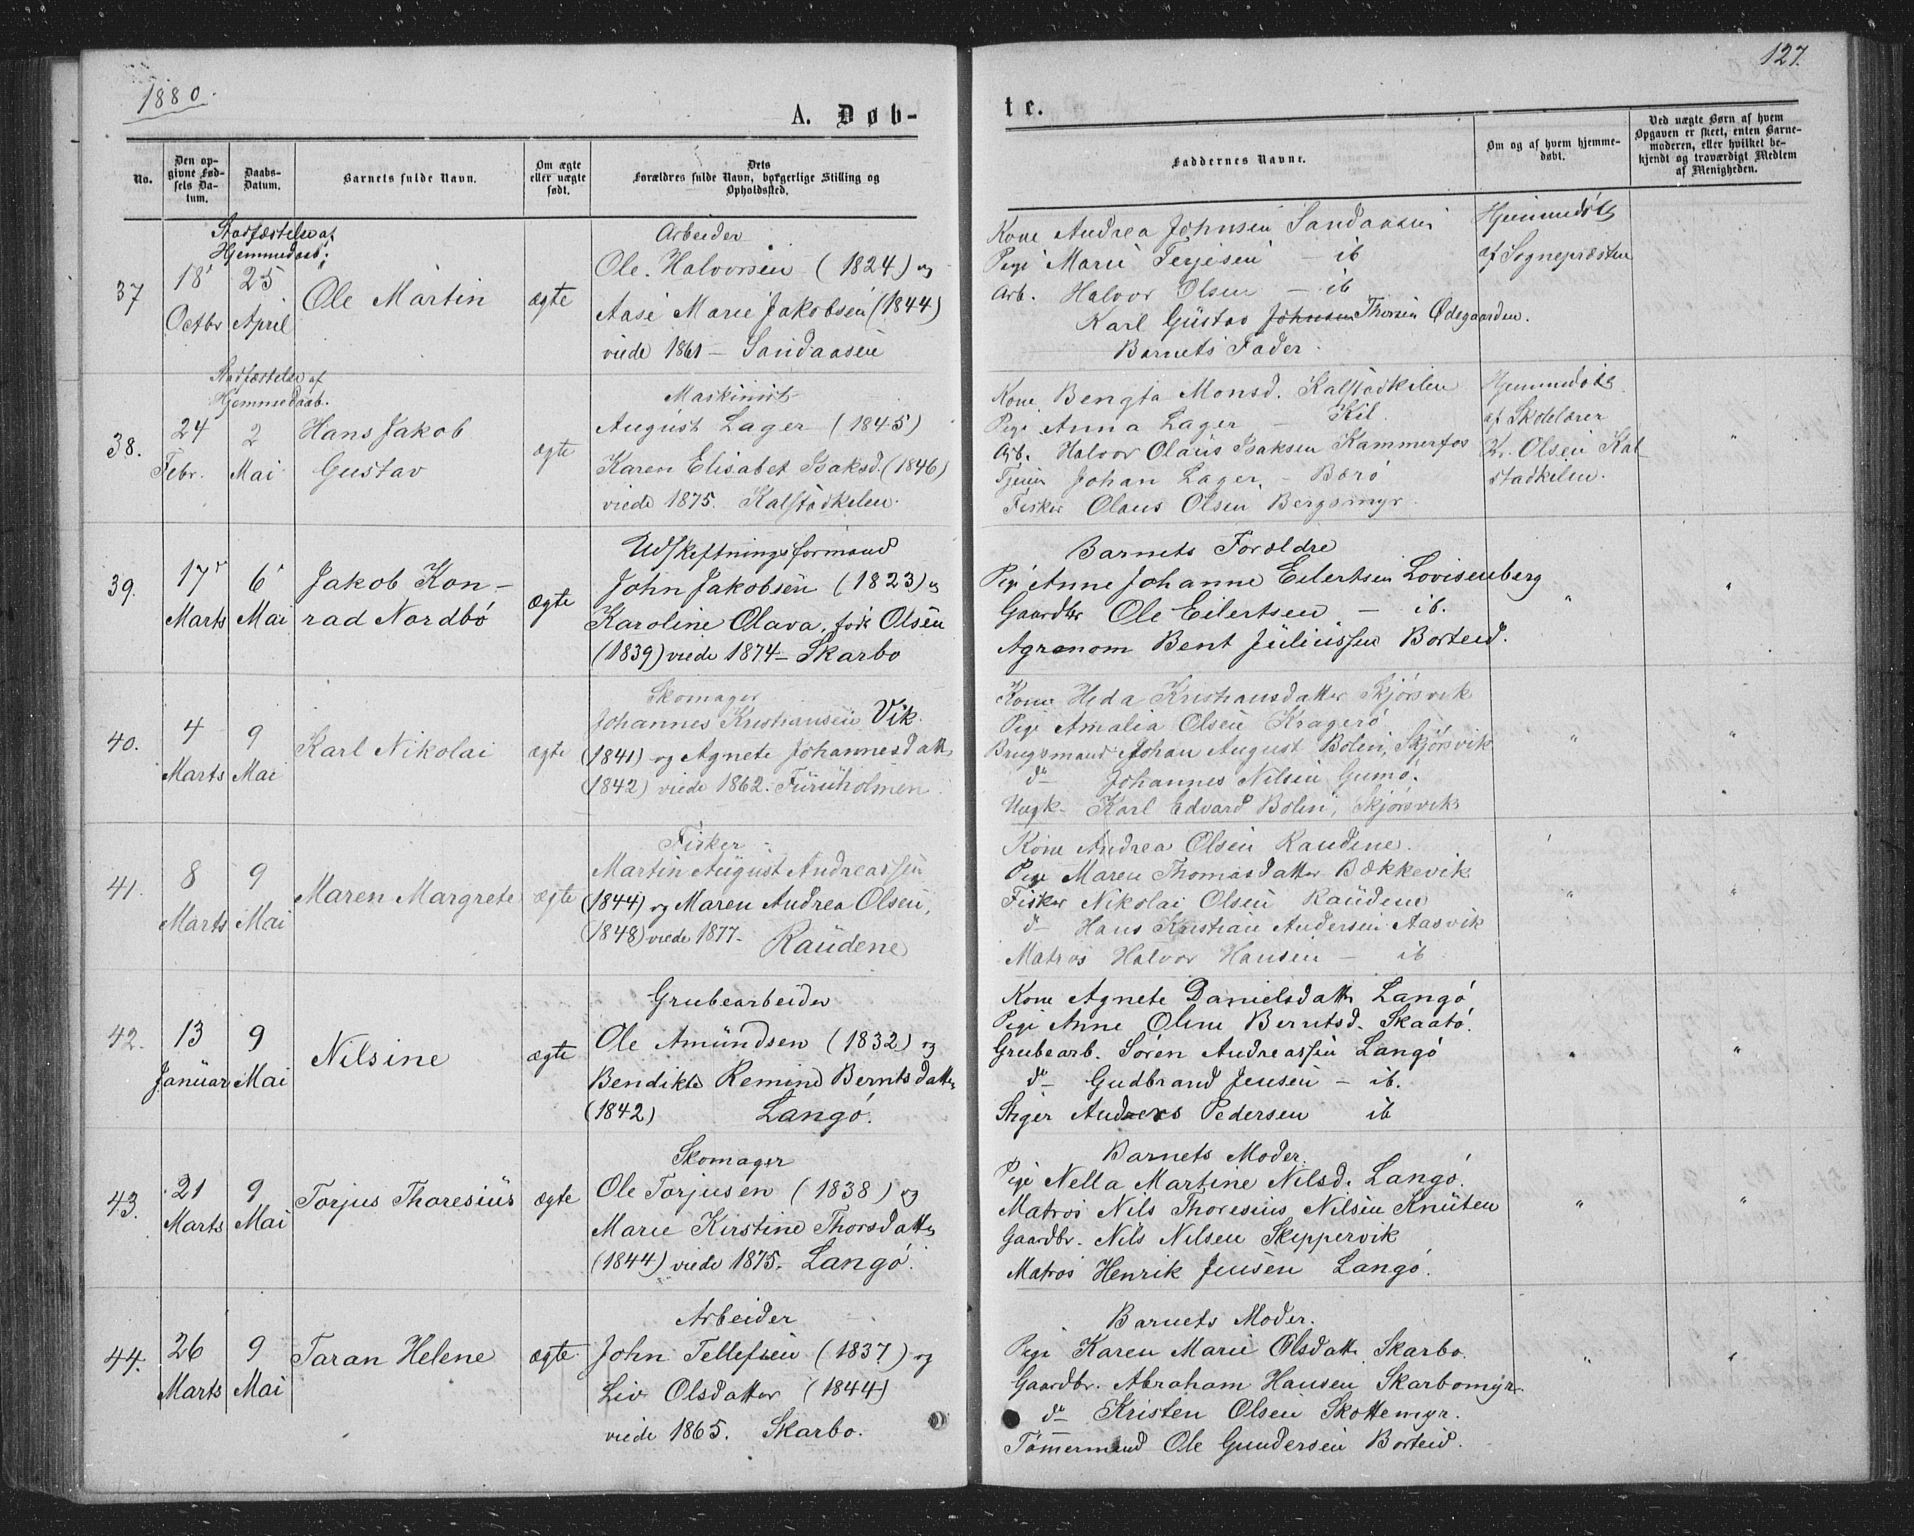 1880.
127.
A. Døb-
te.
No.
Den op-
givne Fød-
sels Da-
tum.
Daabs-
Datum.
Barnets fulde Navn.
Om ægte
eller uægte
født.
Dets
Forældres fulde Navn, borgerlige Stilling og
Opholdssted.
Faddernes Navne.
Om og af hvem hjemme-
døbt.
Ved uægte Børn af hvem
Opgaven er skeet, enten Barne-
moderen, eller hvilket be-
kjendt og troværdigt Medlem
af Menigheden.
Stadfæstelse af
Hjemmedaab;
37
18
Octbr
25
April
Ole Martin
ægte
Arbeider
Ole Halvorsen (1824) og
Aase Marie Jakobsen (1844)
viede 1861 – Sandaasen
Kone Andrea Johnsen Sandaasen
Pige Marie Terjesen – ib
Arb. Halvor Olsen – ib
Karl Gustav Johnsen Thorsen Ødegaarden.
Barnets Fader.
Hjemmedøbt
af Sognepræsten
Stadfæstelse af
Hjemmedaab.
38.
24
Febr.
2
Mai
Hans Jakob
Gustav
ægte
Maskinist
August Lager (1845)
Karen Elisabet Isaksd. (1846)
viede 1875. Kalstadkilen.
Kone Bengta Monsd. Kalstadkilen
Pige Anna Lager – Kil.
Arb. Halvor Olaus Isaksen Kammerfos
Tjener Johan Lager, – Bærø
Fisker Olaus Olsen Bergsmyr.
Hjemmedøbt
af Skolelærer
K. Olsen Kal-
stadkilen.
"
39.
17
Marts
6
Mai
Jakob Kon-
rad Nordbö
ægte
Udskiftningsformand
John Jakobsen (1823) og
Karoline Olava, født Olsen
(1839) viede 1874 – Skarbo
Barnets Foroldre
Pige Anne Johanne Eilertsen Lovisenberg
Gaardbr Ole Eilertsen – ib.
Agronom Bent Juliussen Borteid.
"
"
40.
4
Marts
9
Mai
Karl Nikolai
ægte
Skomager
Johannes Kristiansen Vik
(1841) og Agnete Johannesdatt.
(1842) viede 1862. Furuholmen.
Kone Heda Kristiansdatter Skjörsvik
Pige Amalia Olsen Kragerö
Brugsmand Johan August Bolin, Skjörsvik
do – Johannes Nilsen Gumö.
Ungk. Karl Edvard Bolin, Skjörsvik
"
"
41.
8
Marts
9
Mai
Maren Margrete
ægte
Fisker
Martin August Andreassen
(1844) og Maren Andrea Olsen,
(1848) viede 1877. Raudene
Kone Andrea Olsen Raudene.
Pige Maren Thomasdatter Bækkevik
Fisker Nikolai Olsen Raudene
do – Hans Kristian Andersen Aasvik
Matros Halvor Hansen – ib
"
"
42.
13
Januar
9
Mai
Nilsine
ægte
Grubearbeider
Ole Amundsen (1832) og
Bendikte Remine Berntsdatter
(1842) Langö.
Kone Agnete Danielsdatt Langö
Pige Anne Oline Berntsd. Skaatö.
Grubearb. Sören Andreassen Langö
do – Gudbrand Jensen – ib.
Stiger Andreas Pedersen ib
"
"
43.
21
Marts
9
Mai
Torjus Thoresius
ægte
Skomager
Ole Torjusen (1838) og
Marie Kirstine Thorsdatter
(1844) viede 1875. Langö.
Barnets Moder.
Pige Nella Martine Nilsd. Langö.
Matros Nils Thoresius Nilsen Knuten
Gaardbr. Nils Nilsen Skeppervik
Matros Henrik Jensen Langö.
"
"
44.
26
Marts
9
Mai
Taran Helene
ægte
Arbeider
John Tellefsen (1837) og
Liv Olsdatter (1844)
viede 1865. Skarbo.
Barnets Moder.
Pige Karen Marie Olsdatt. Skarbo.
Gaardbr. Abraham Hansen Skarbomyr
do – Kristen Olsen Skottemyr.
Tömmermand Ole Gundersen Borteid.
"
"